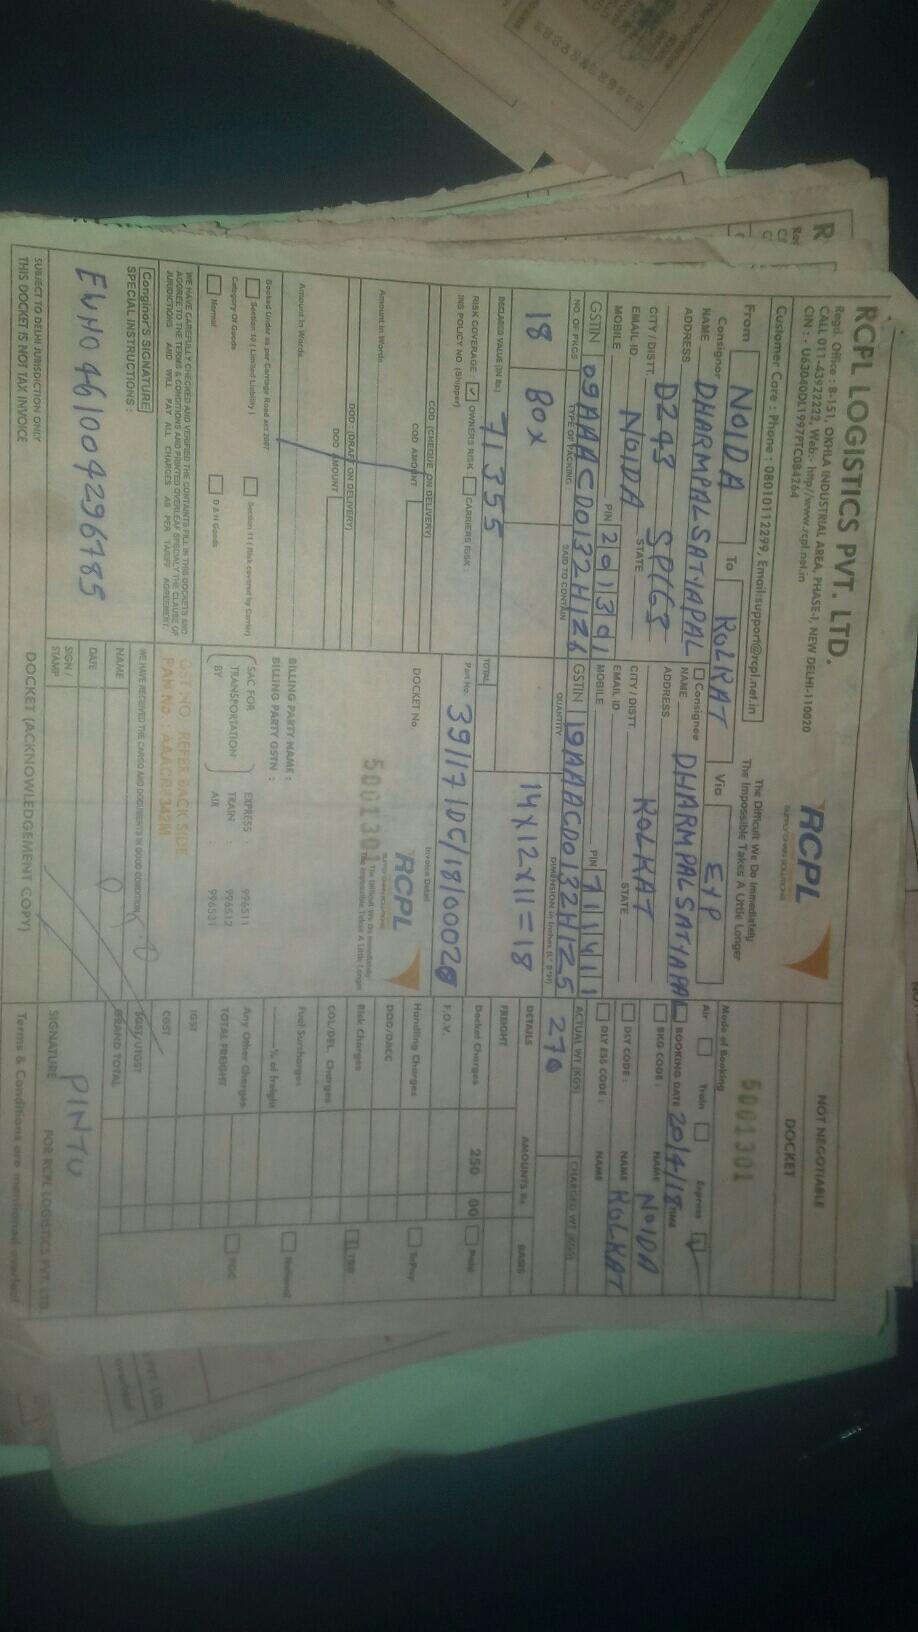 RCPL LOGISTICS PVT. LTD.
Regd. Office : B-151, OKHLA INDUSTRIAL AREA, PHASE-I, NEW DELHI-110020
CALL 011-43922222, Web:- http//www.rcpl.net.in
CIN : U63040DL1997PTC084264
Customer Care : Phone : 08010112299, Email:support@rcpl.net.in
RCPL
The Difficult We Do Immediately
The Impossible Takes A Little Longer
NOT NEGOTIABLE
DOCKET
5001301
From NOIDA To KOLKAT Via EXP
Mode of Booking
Air Train Express
Consignor
NAME DHARMPAL SATYAPAL
ADDRESS D243 SPI63
CITY / DISTT. NOIDA STATE
EMAIL ID
MOBILE PIN 201301
GSTIN 09AAACD0132H1Z6
Consignee
NAME DHARMPAL SATYAPAL
ADDRESS
CITY / DISTT. KOLKAT STATE
EMAIL ID
MOBILE PIN 711411
GSTIN 19AAACD0132H1Z5
BOOKING DATE 20/4/18 TIME
BKG CODE : NAME NOIDA
DLY CODE : NAME KOLKAT
DLY ESS CODE : NAME
NO. OF PKGS TYPE OF PACKING SAID TO CONTAIN QUANTITY DIMENSION in Inches (L*B*H) ACTUAL WT (KGS) CHARGED WT (KGS)
18 BOX 14X12X11=18 270
TOTAL
DECLARED VALUE (IN Rs.) 71355
RISK COVERAGE : OWNERS RISK : CARRIERS RISK :
INS POLICY NO (Shipper)
Part No. 391171DC/18/00020
Invoice Detail
COD (CHEQUE ON DELIVERY)
COD AMOUNT
Amount in Words
DOD : (DRAFT ON DELIVERY)
DOD AMOUNT
Amount in Words
DOCKET No.
5001301
RCPL
The Difficult We Do Immediately
The Impossible Takes A Little Longer
BILLING PARTY NAME :
BILLING PARTY GSTN :
SAC FOR TRANSPORTATION BY
EXPRESS : 996511
TRAIN : 996512
AIR : 996531
DETAILS AMOUNTS Rs. BASIS
FREIGHT
Docket Charges 250 00 Paid
F.O.V.
Handling Charges ToPay
DOD/DACC
Risk Charges TBB
COL/DEL. Charges
Fuel Surcharges National
% of freight
Any Other Charges FOC
TOTAL FREIGHT
IGST
CGST
SGST/UTGST
GRAND TOTAL
Booked Under as per Carriage Road act 2007
Section 10 ( Limited Liability ) Section 11 ( Risk covered by Carrier)
Category Of Goods
Normal D & H Goods
WE HAVE CAREFULLY CHECKED AND VERIFIED THE CONTAINTS FILL IN THIS DOCKETS AND
AGGREE TO THE TERMS & CONDITIONS AND PRINTED OVERLEAF SPECIALY THE CLAUSE OF
JURISDICTIONS AND WILL PAY ALL CHARGES AS PER TARIFF AGREEMENT.
Conginor'S SIGNATURE
SPECIAL INSTRUCTIONS :
EWNO 461004296785
GST NO. REFER BACK SIDE
PAN No. : AAACR8342M
WE HAVE RECEIVED THE CARGO AND DOCUMENTS IN GOOD CONDITION
NAME
DATE
SIGN / STAMP
SIGNATURE PINTU
FOR RCPL LOGISTICS PVT. LTD.
SUBJECT TO DELHI JURISDICTION ONLY
THIS DOCKET IS NOT TAX INVOICE
DOCKET (ACKNOWLEDGEMENT COPY)
Terms & Conditions are mentioned overleaf